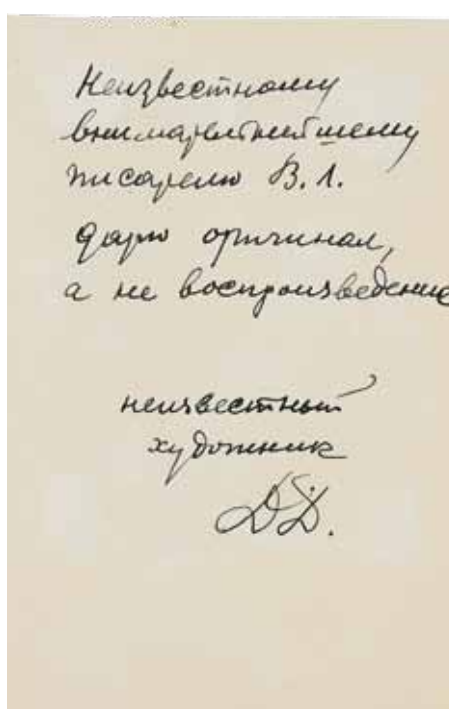 Неизвестному
внимательнейшему
писателю В. Л.
дарю оригинал,
а не воспроизведение
неизвестный
художник
ДД.